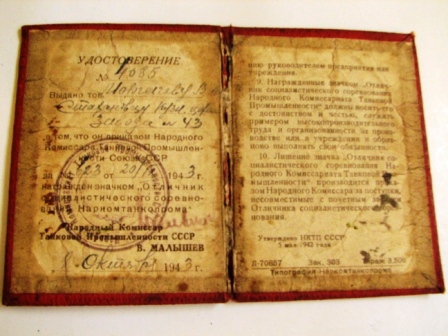 УДОСТОВЕРЕНИЕ
№ 4085
Выдано тов.
Завода № 43
в том, что он приказом Народного
Комиссара Танковой Промышлен-
ности Союза ССР
за № от 1943 г.
награжден значком „Отличник
социалистического соревно-
вания Наркомтанкопрома"
Народный Комиссар
Танковой Промышленности СССР
В. МАЛЫШЕВ
8 Октября 1943 г.
нию руководителем предприятия или
учреждения.
9. Награжденные значком „Отличник
социалистического соревнования
Народного Комиссариата Танковой
Промышленности" должны носить его
с достоинством и честью, служить
примером высокопроизводительного
труда и организованности на
производстве или в учреждении и образцо-
во выполнять свои обязанности.
10. Лишение значка „Отличник со-
циалистического соревнования На-
родного Комиссариата Танковой Про-
мышленности" производится прика-
зом Народного Комиссара за поступки,
несовместимые с почетным званием
Отличника социалистического сорев-
нования.
Утверждено НКТП СССР
1942 года.
Л-70857 Зак. 503 Тираж
Типография Наркомтанкопрома